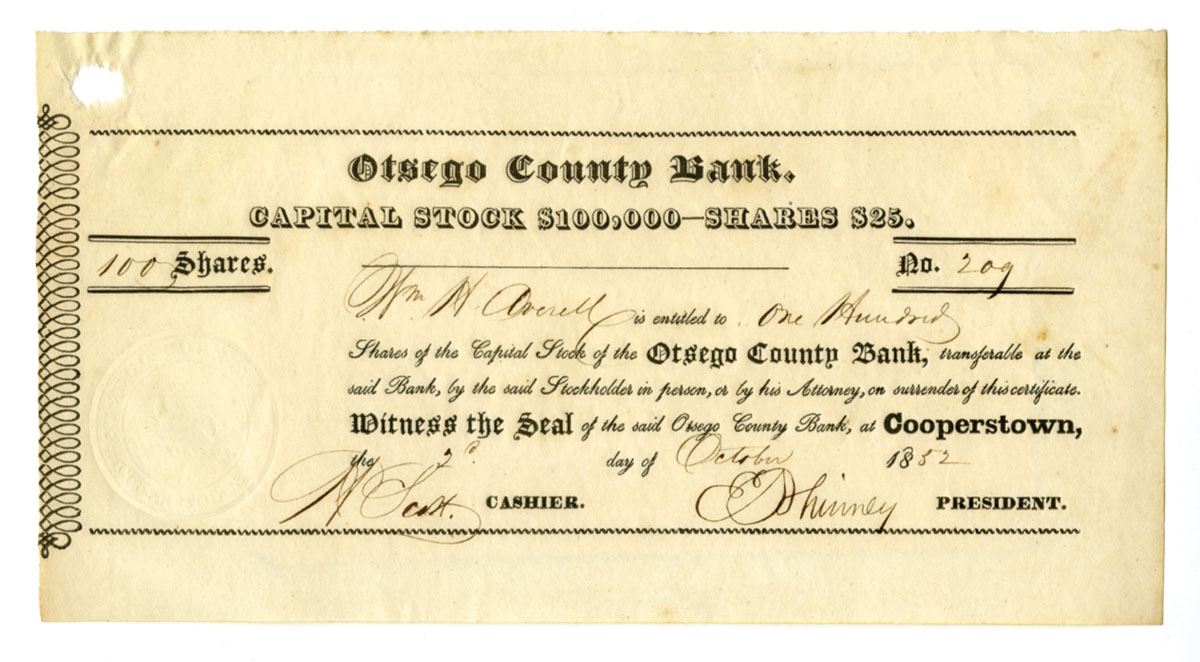 Otsego County Bank.
CAPITAL STOCK $100,000—SHARES $25.
100 Shares.
No. 209
Wm H. Averell is entitled to One Hundred
Shares of the Capital Stock of the Otsego County Bank, transferable at the
said Bank, by the said Stockholder in person, or by his Attorney, on surrender of this certificate.
Witness the Seal of the said Otsego County Bank, at Cooperstown,
the 2d day of October 1852
H Scott. CASHIER. E Phinney PRESIDENT.